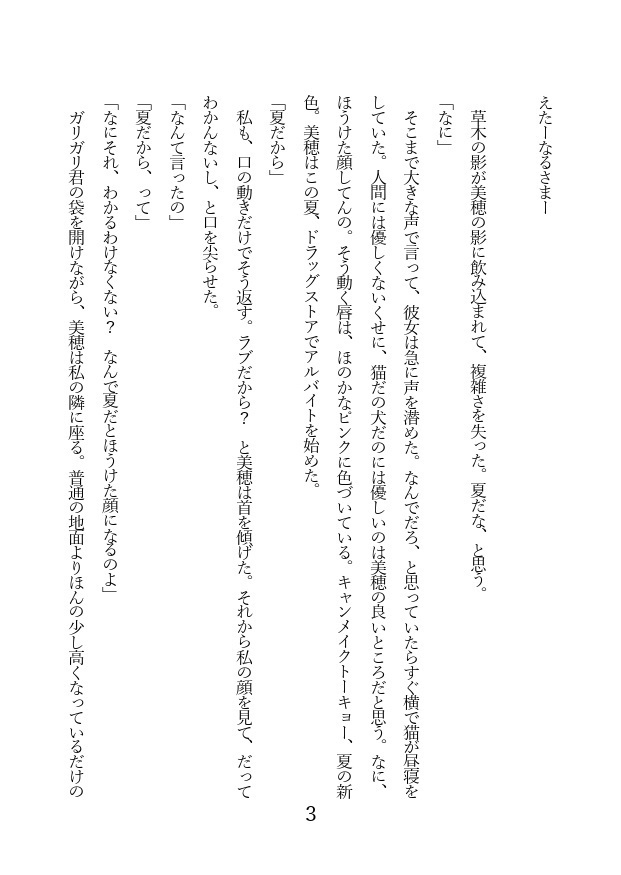 えたーなるさまー
　草木の影が美穂の影に飲み込まれて、複雑さを失った。夏だな、と思う。
「なに」
　そこまで大きな声で言って、彼女は急に声を潜めた。なんでだろ、と思っていたらすぐ横で猫が昼寝を
していた。人間には優しくないくせに、猫だの犬だのには優しいのは美穂の良いところだと思う。なに、
ほうけた顔してんの。そう動く唇は、ほのかなピンクに色づいている。キャンメイクトーキョー、夏の新
色。美穂はこの夏、ドラッグストアでアルバイトを始めた。
「夏だから」
　私も、口の動きだけでそう返す。ラブだから？　と美穂は首を傾げた。それから私の顔を見て、だって
わかんないし、と口を尖らせた。
「なんて言ったの」
「夏だから、って」
「なにそれ、わかるわけなくない？　なんで夏だとほうけた顔になるのよ」
　ガリガリ君の袋を開けながら、美穂は私の隣に座る。普通の地面よりほんの少し高くなっているだけの
3